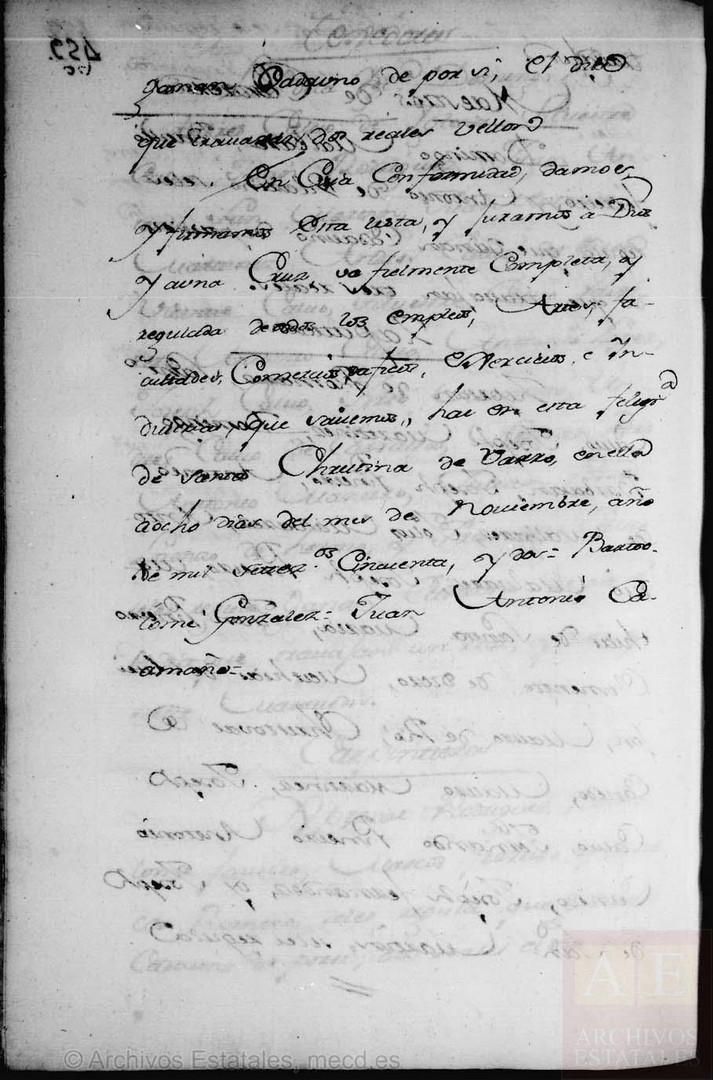 ganan Cadauno de por si, el dia
que travaxan dos reales vellon
En Cuia Conformidad, damos
y firmamos Esta lista, y Juramos a Dios
y auna Cruz va fielmente Completa, y
regulada de todos los empleos, Artes, fa-
cultades, Comercios, traficos, exercicios, e yn-
dustrias, que savemos, hai en esta felig.ª
de Santa Christina de Varro, en ella
a ocho dias del mes de Noviembre, año
de mil setez.os Cincuenta, y dos= Barto-
lomé Gonzalez= Juan Antonio Ca-
amaño=
© Archivos Estatales, mecd.es
AE
ARCHIVOS
ESTATALES